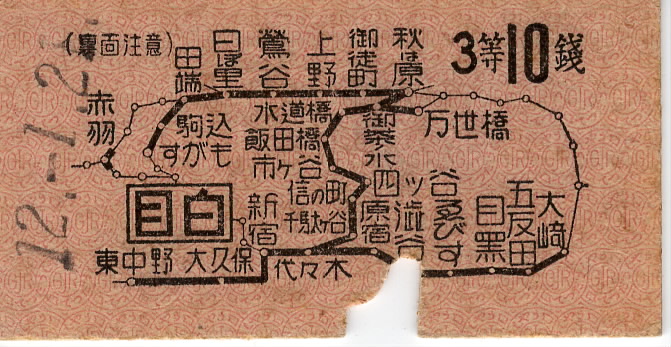 (裏面注意)
3等10錢
12.-1.2
赤羽
田端
日暮里
鶯谷
上野
御徒町
秋は原
駒込
すがも
水道橋
飯田橋
市ヶ谷
信の町
千駄ヶ谷
御茶水
万世橋
四ッ谷
原宿
澁谷
ゑびす
目黑
五反田
大崎
目白
新宿
東中野
大久保
代々木